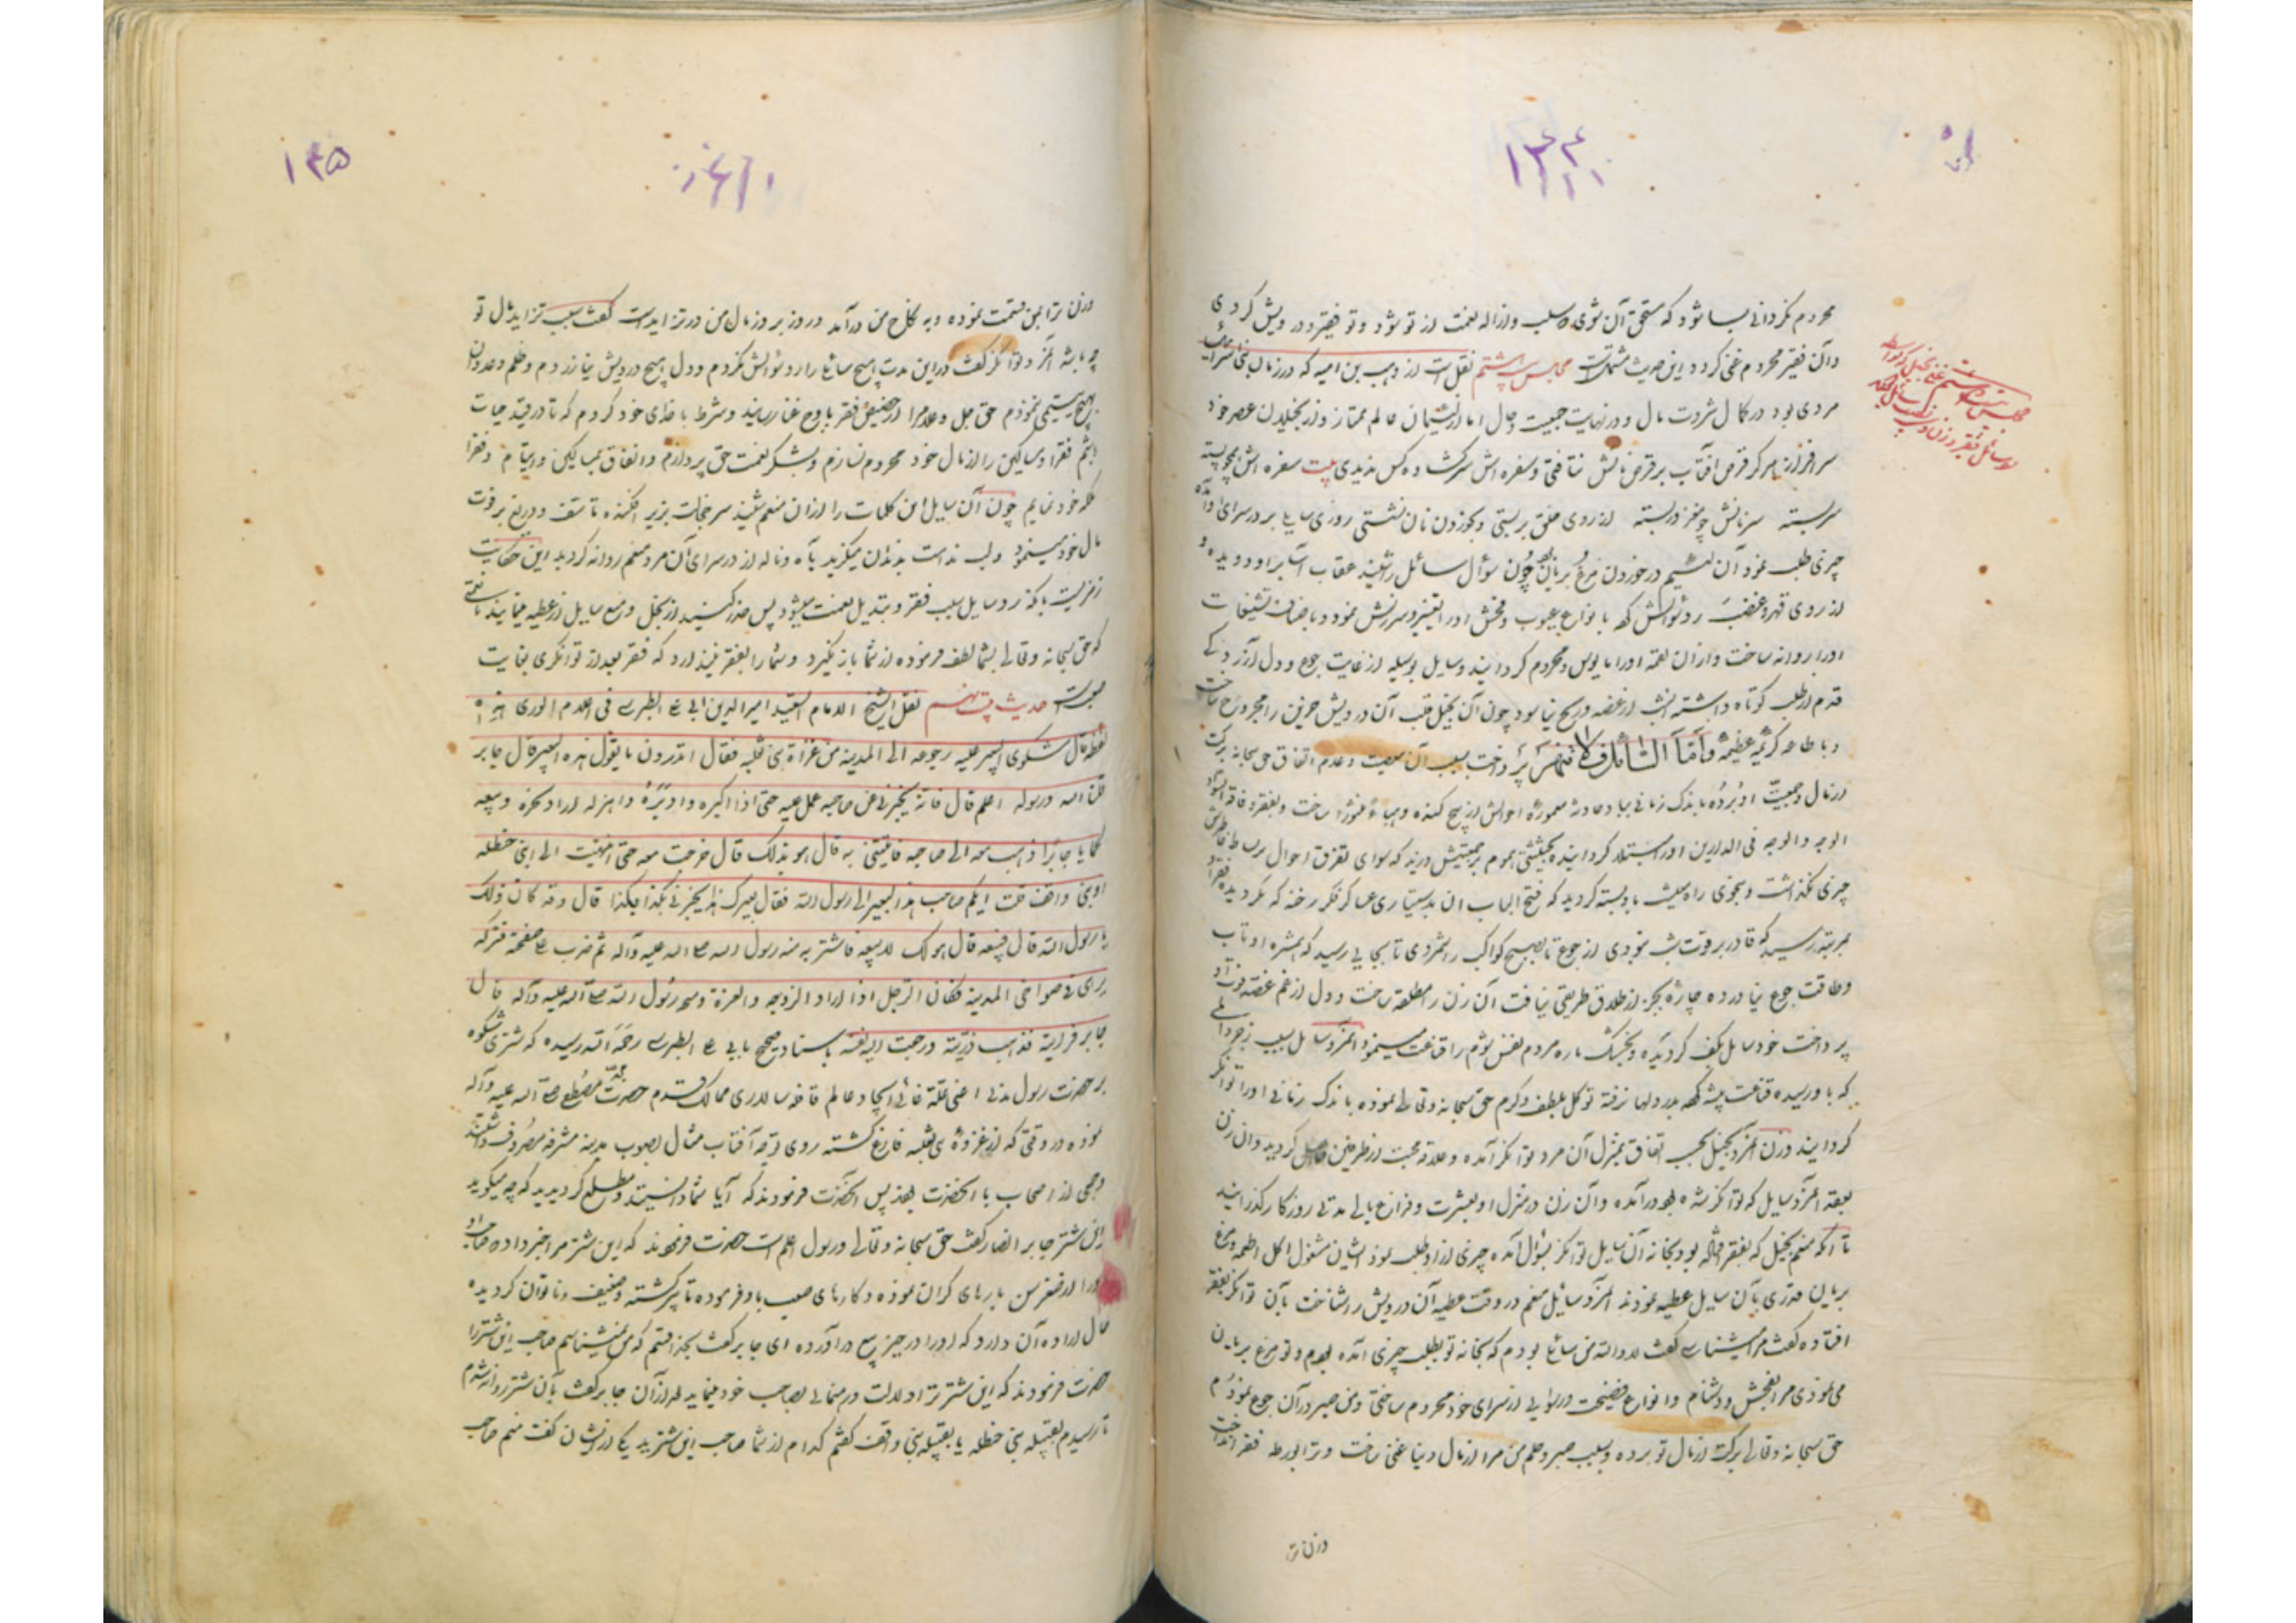 محروم نگردانی بسا شود که مستحق آن شوی و سلب و ازاله نعمت از تو شود و تو فقیر و درویش گردی
و آن فقیر محروم غنی گردد و این حدیث مشتمل است مجلس هشتم نقل است از وهب بن امیه که در زمان بنی اسرائیل
مردی بود در کمال ثروت مال و در نهایت جمعیت و حال اما از لئیمان عالم ممتاز و از بخیلان عصر خود
سرافراز هرگز قرص آفتاب بر قرص نانش نتافتی و سفره اش سرگشاده کس ندیدی بیت سفره اش پیوسته
سربسته سر نانش چو مغز در پسته از روی خلق بر بستی و بخوردن نان نشستی روزی سایل بر در سرای او آمده
چیزی طلب نمود آن لئیم در خوردن مرغ بریان بود چون سؤال سائل را شنید عقاب آسا بر او دویده و
از روی قهر و غضب رد سؤالش کرده بانواع عیوب و فحش او را تغییر و سرزنش نمود و باصناف تشنیعات
او را روانه ساخت و از آن لقمه او را مایوس و محروم گردانید و سایل بوسیله از غایت جوع و دل آزردگی
قدم از طلب کوتاه داشته آن شب از غصه و رنج نیاسود چون آن بخیل قلب آن درویش حزین را مجروح ساخت
و با طاعه کریمه عظیمه وَأَمَّا السَّائِلَ فَلَا تَنْهَرْ پرداخت بسبب آن معصیت و عدم انفاق حق سبحانه برکت
از مال و جمعیت او برده باندک زمانی
الوجه فی الدارین او را مبتلا گردانیده
چیزی نگذاشت
بمرتبه رسید که قادر بر قوت شب نبودی از جوع تا بصبح کواکب را شمردی تا بجایی رسید که
و طاقت جوع نیاورده چاره بجز از طلاق طریقی نیافت آن زن را مطلقه ساخت و دل از غم غصه قوت او
پرداخت خود سایل بکف گردیده
که باو رسیده قناعت پیشه کرده بدر دلها نرفته توکل بلطف و کرم حق سبحانه و تعالی نموده باندک زمانی او را توانگر
گردانید و زن آن مرد بخیل بحسب اتفاق بمنزل آن مرد توانگر آمده و علاقه محبت از طرفین حاصل گردید و آن زن
بعقد آن مرد سایل که توانگر شده بود درآمده و آن زن در منزل او بعشرت و فراغ بالی مدتی روزگار گذرانید
تا آنکه منعم بخیل که بفقر افتاده بود بخانه آن سایل توانگر بسؤال آمده چیزی از او طلب نمود ایشان مشغول اکل اطعمه و مرغ
بریان قدری بآن سایل عطیه نمودند آن مرد سایل منعم در وقت عطیه آن درویش را شناخت بآن توانگر بفقر
افتاده گفت مرا میشناسی گفت لا والله من سائل بودم که بخانه تو بطلب چیزی آمده بودم و تو مرغ بریان
می نمودی مرا بفحش و دشنام و انواع فضیحت و رسوایی از سرای خود محروم ساختی و من صبر در آن جوع نمودم
حق سبحانه و تعالی برکت از مال تو برده و بسبب صبر و حلم من مرا از مال دنیا غنی ساخت و ترا بورطه فقر انداخت
وزن ترا
۱۳۴
مجلس بیست و هشتم
وزن ترا بمن قسمت نموده و به نکاح من درآمد و روز بروز مال من در تزاید است گفت سبب تزاید مال تو
چه باشد آن مرد توانگر گفت در این مدت هیچ سائل را رد سؤالش نکردم و دل هیچ درویش نیازردم و ظلم و عدوان
بهیچ یتیمی ننمودم حق جل و علا مرا از حضیض فقر باوج غنا رسانید و شرط با خدای خود کردم که تا در قید حیات
باشم فقرا و مساکین را از مال خود محروم نسازم و بشکر نعمت حق پردازم و انفاق بمساکین و ایتام و فقرا
ملکه خود نمایم چون آن سایل این کلمات را از آن منعم شنید سر خجلت بزیر افکنده تاسف و دریغ بر فوت
مال خود مینمود و لب ندامت بدندان میگزید با آه و ناله از در سرای آن مرد منعم روانه گردید این حکایت
رد سایل سبب فقر و تبدیل نعمت میشود پس حذر کنید از بخل و منع سایل از عطیه
که حق سبحانه و تعالی بشما لطف فرموده از شما باز نگیرد و شما را بفقر نیندازد که فقر بعد از توانگری بغایت
صعوبت حدیث بیست نهم نقل الشیخ الامام السعید امیر الدین ابی علی الطبرسی فی اعلام الوری هذه
لفظه قال شکوی البعیر علیه رجوعه الی المدینة من غزاة بنی ثعلبه فقال اتدرون ما یقول هذه البعیر قال جابر
قلنا الله و رسوله اعلم قال فانه یخبرنی عن صاحبه عمل علیه حتی اذا اکبره و ادبره و اهزله اراد نحره و بیعه
لحما یا جابر اذهب معه الی صاحبه فاتینی به قال هو یدلک قال خرجت معه حتی انتهیت الی بنی حنظله
او بنی واقف قلت ایکم صاحب هذا البعیر الی رسول الله فقال بعیرک هذا یخبرنی بکذا و بکذا قال و قد کان ذلک
یا رسول الله قال فبیعه قال هو لک لا بیعه فاشتر به منه رسول الله صلی الله علیه و آله ثم ضرب علی صفحته فترکه
یرعی فی ضواحی المدینة فکان الرجل اذا اراد
جابر فرایته قد ذهب دبرته و رجعت الیه نفسه باسناد صحیح بابی علی الطبرسی رحمه الله رسیده که شتری شکوه
بر حضرت رسول مدنی اعنی علت غائی ایجاد عالم قافله سالار ممالک قدم حضرت محمد مصطفی صلی الله علیه و آله
نموده در وقتی که از غزوه بنی ثعلبه فارغ گشته روی توجه آفتاب مثال بصوب مدینه مشرفه مصروف داشتند
و جمعی از اصحاب با آنحضرت بودند پس آنحضرت فرمودند که آیا شما دانستید و مطلع گردیدید که چه میگوید
این شتر جابر انصار گفت حق سبحانه و تعالی و رسول اعلم است حضرت فرمودند که این شتر مرا خبر داده صاحب او
او را از صغر سن بارهای گران نموده و کارهای صعب باو فرموده تا پیر گشته و ضعیف و ناتوان گردیده
حال اراده آن دارد که او را در حیز بیع درآورده ای جابر گفت بخدا قسم که من نمیشناسم صاحب این شتر را
حضرت فرمودند که این شتر ترا دلالت و رهنمائی بصاحب خود مینماید بعد از آن جابر گفت بآن شتر روانه شدم
تا رسیدم بقبیله بنی حنظله یا بقبیله بنی واقف گفتم کدام از شما صاحب این شترید یکی از ایشان گفت منم صاحب
۱۳۵